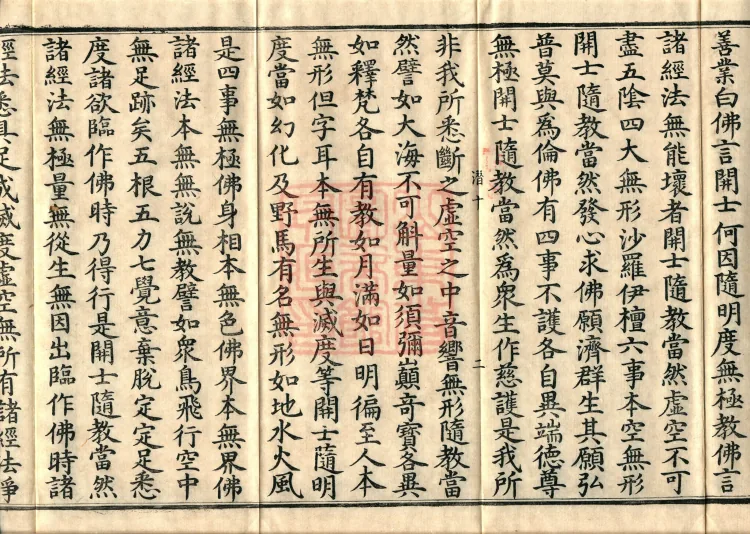 善業白佛言開士何因隨明度無極教佛言
諸經法無能壞者開士隨教當然虛空不可
盡五陰四大無形沙羅伊檀六事本空無形
開士隨教當然發心求佛願濟群生其願弘
普莫與為倫佛有四事不護各自異端德尊
無極開士隨教當然為衆生作慈護是我所
潜十 二
非我所悉斷之虛空之中音響無形隨教當
然譬如大海不可斛量如須彌巔奇寶各異
如釋梵各自有教如月滿如日明徧至人本
無形但字耳本無所生與滅度等開士隨明
度當如幻化及野馬有名無形如地水火風
是四事無極佛身相本無色佛界本無界佛
諸經法本無無說無教譬如衆鳥飛行空中
無足跡矣五根五力七覺意棄脫定定足悉
度諸欲臨作佛時乃得行是開士隨教當然
諸經法無極量無從生無因出臨作佛時諸
經法悉具足成滅度虛空無所有諸經法淨